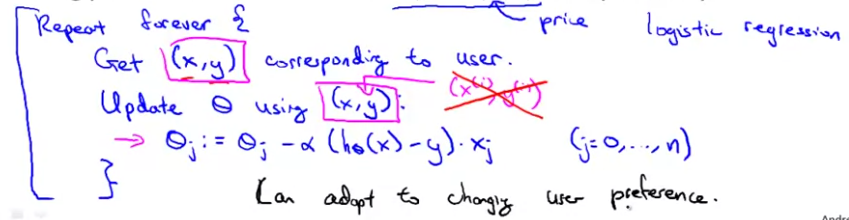 price logistic regression
Repeat forever {
Get (x,y) corresponding to user.
Update θ using (x,y): (x⁽ⁱ⁾, y⁽ⁱ⁾)
→ θj := θj - α (hθ(x) - y) · xj (j=0,...,n)
}
Can adapt to changing user preference.
Andre